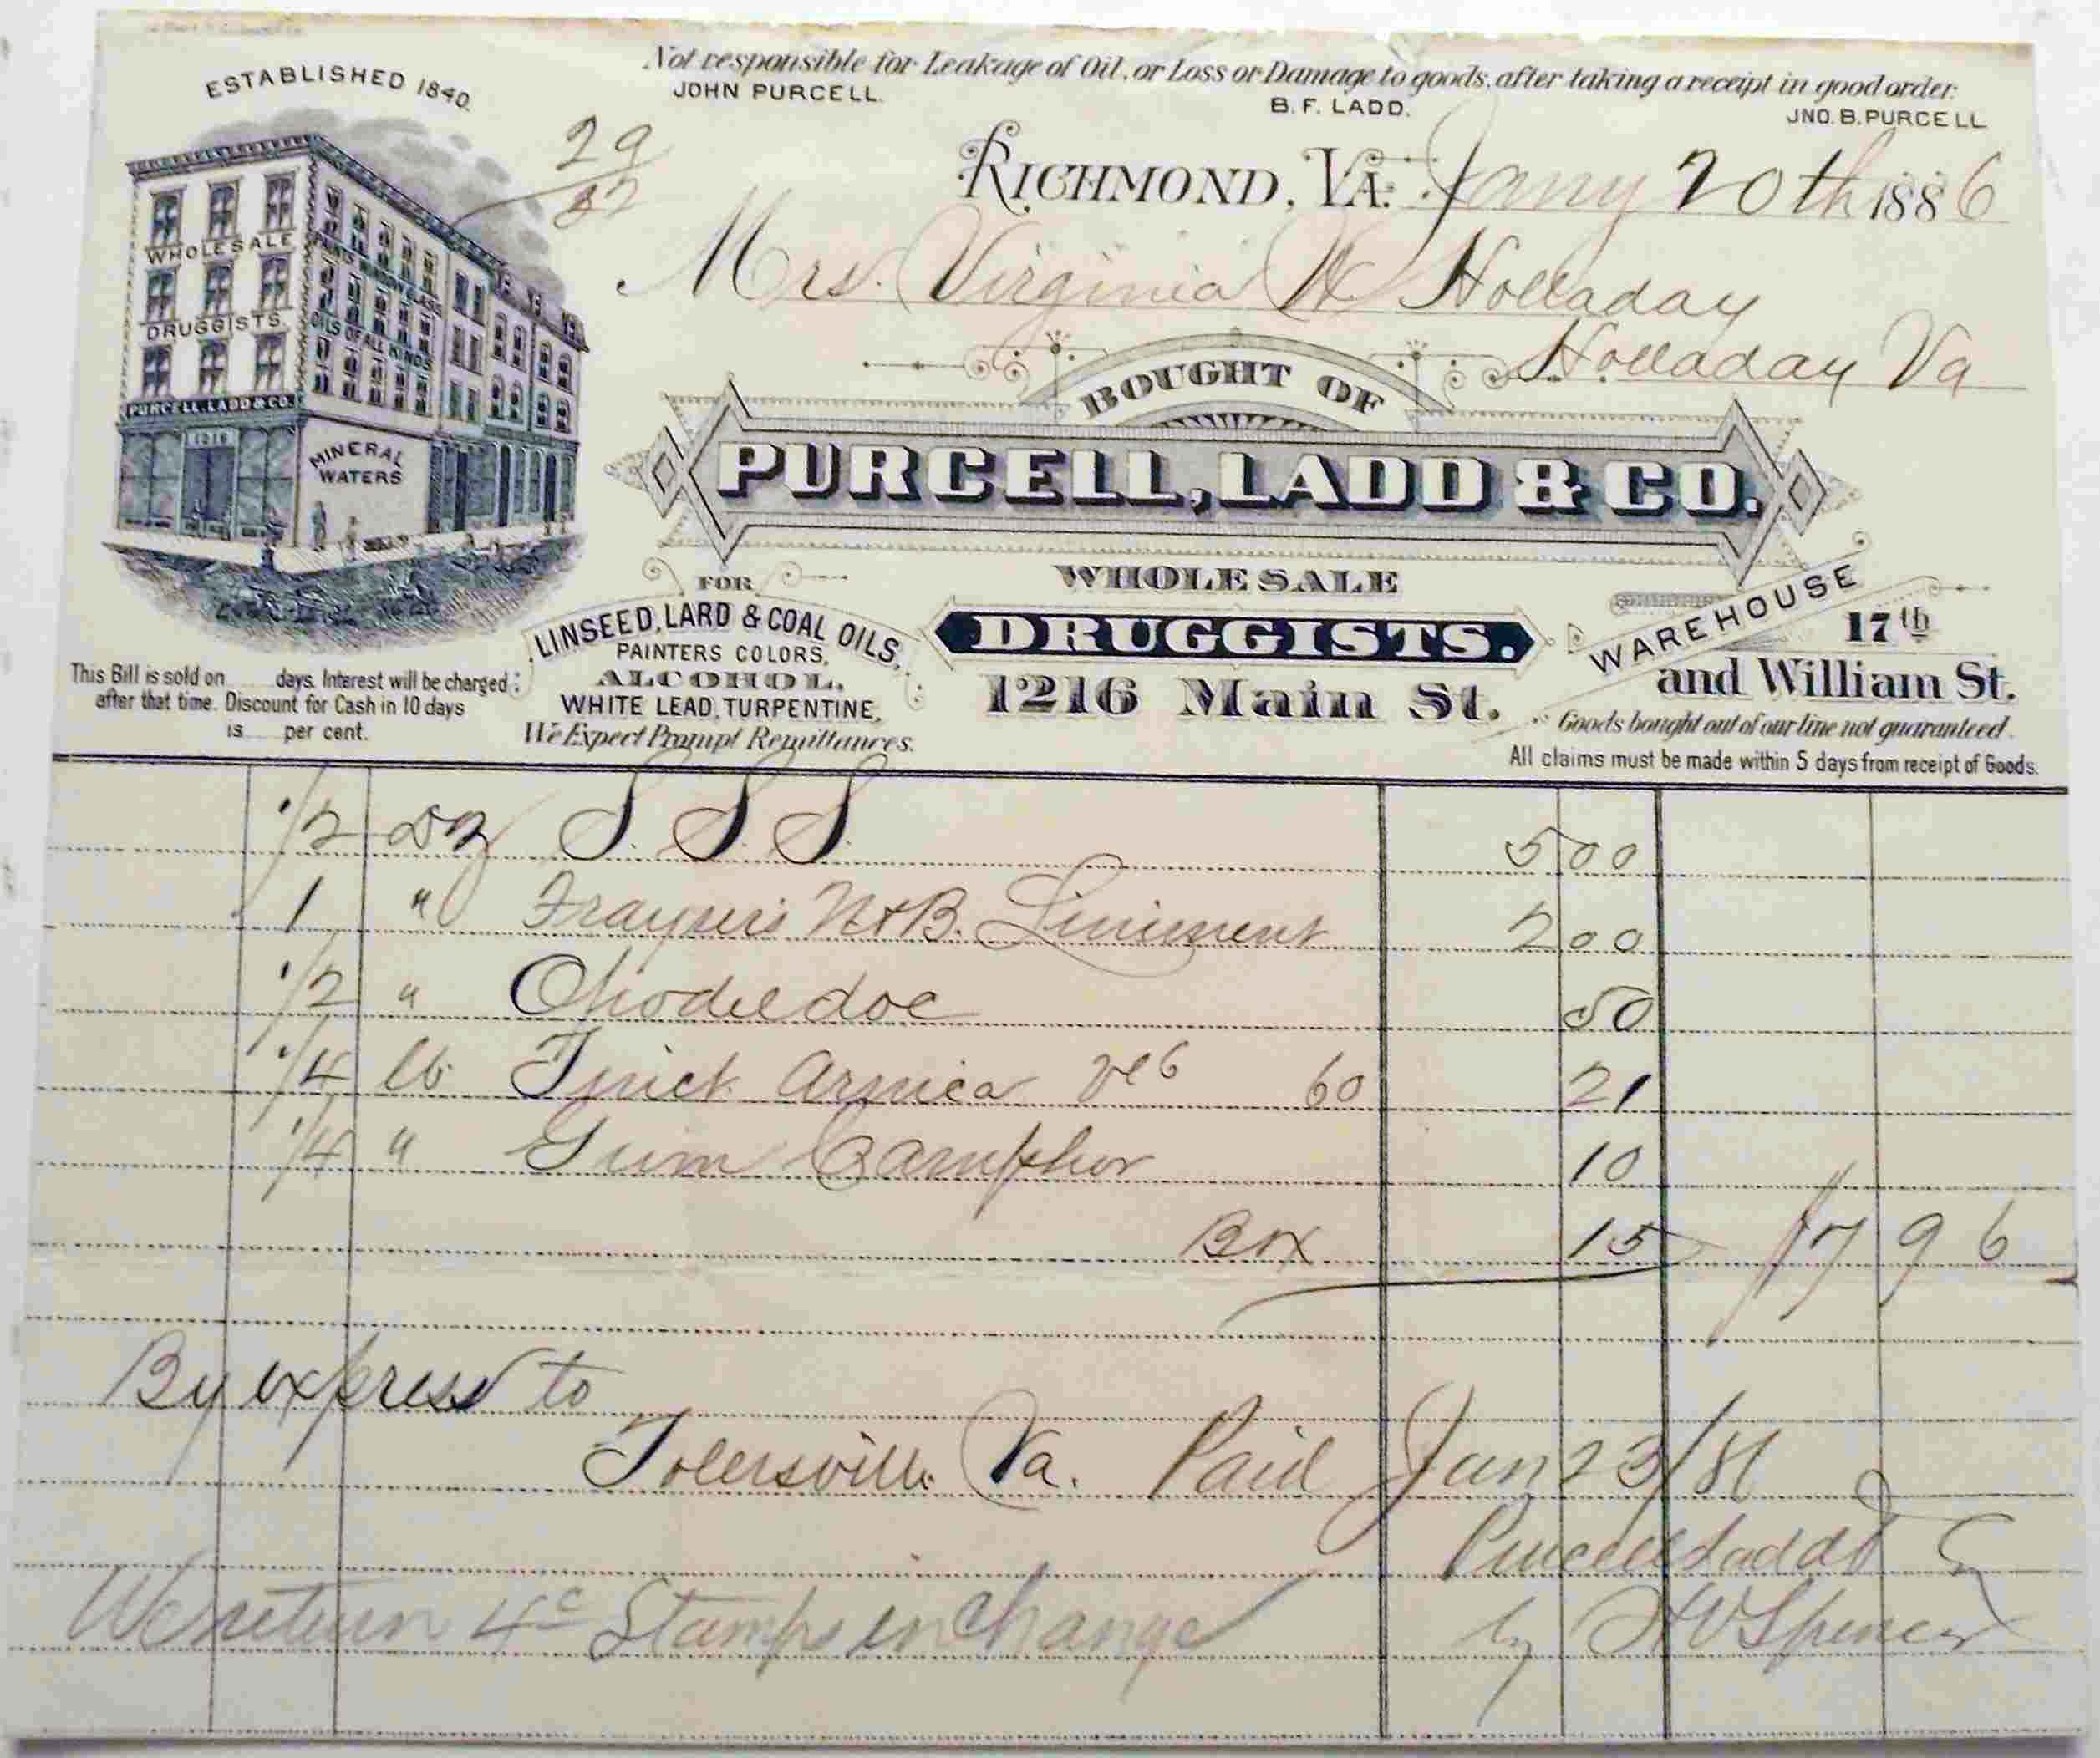 ESTABLISHED 1840.
Not responsible for Leakage of Oil, or Loss or Damage to goods, after taking a receipt in good order.
JOHN PURCELL. B. F. LADD. JNO. B. PURCELL
29
RICHMOND, VA. Jany 20th 1886
Mrs. Virginia W Holladay
Holladay Va
WHOLESALE
DRUGGISTS
PAINTS WINDOW GLASS
OILS OF ALL KINDS
PURCELL, LADD & CO.
1216
MINERAL
WATERS
BOUGHT OF
PURCELL, LADD & CO.
WHOLESALE
DRUGGISTS.
1216 Main St.
FOR
LINSEED, LARD & COAL OILS,
PAINTERS COLORS,
ALCOHOL,
WHITE LEAD, TURPENTINE,
We Expect Prompt Remittances.
WAREHOUSE
17th
and William St.
Goods bought out of our line not guaranteed.
All claims must be made within 5 days from receipt of Goods.
This Bill is sold on days. Interest will be charged
after that time. Discount for Cash in 10 days
is per cent.
1/2 Dz S. S. S. 5 00
1 " Frayser's N & B. Liniment 2 00
1/2 " Opodeldoc 50
1/4 lb. Tinct. Arnica 60 21
1/4 " Gum Camphor 10
Box 15 7 96
By express to
Tolersville Va. Paid Jan 23/86
Purcell Ladd & Co
We return 4c Stamps in change by Spencer